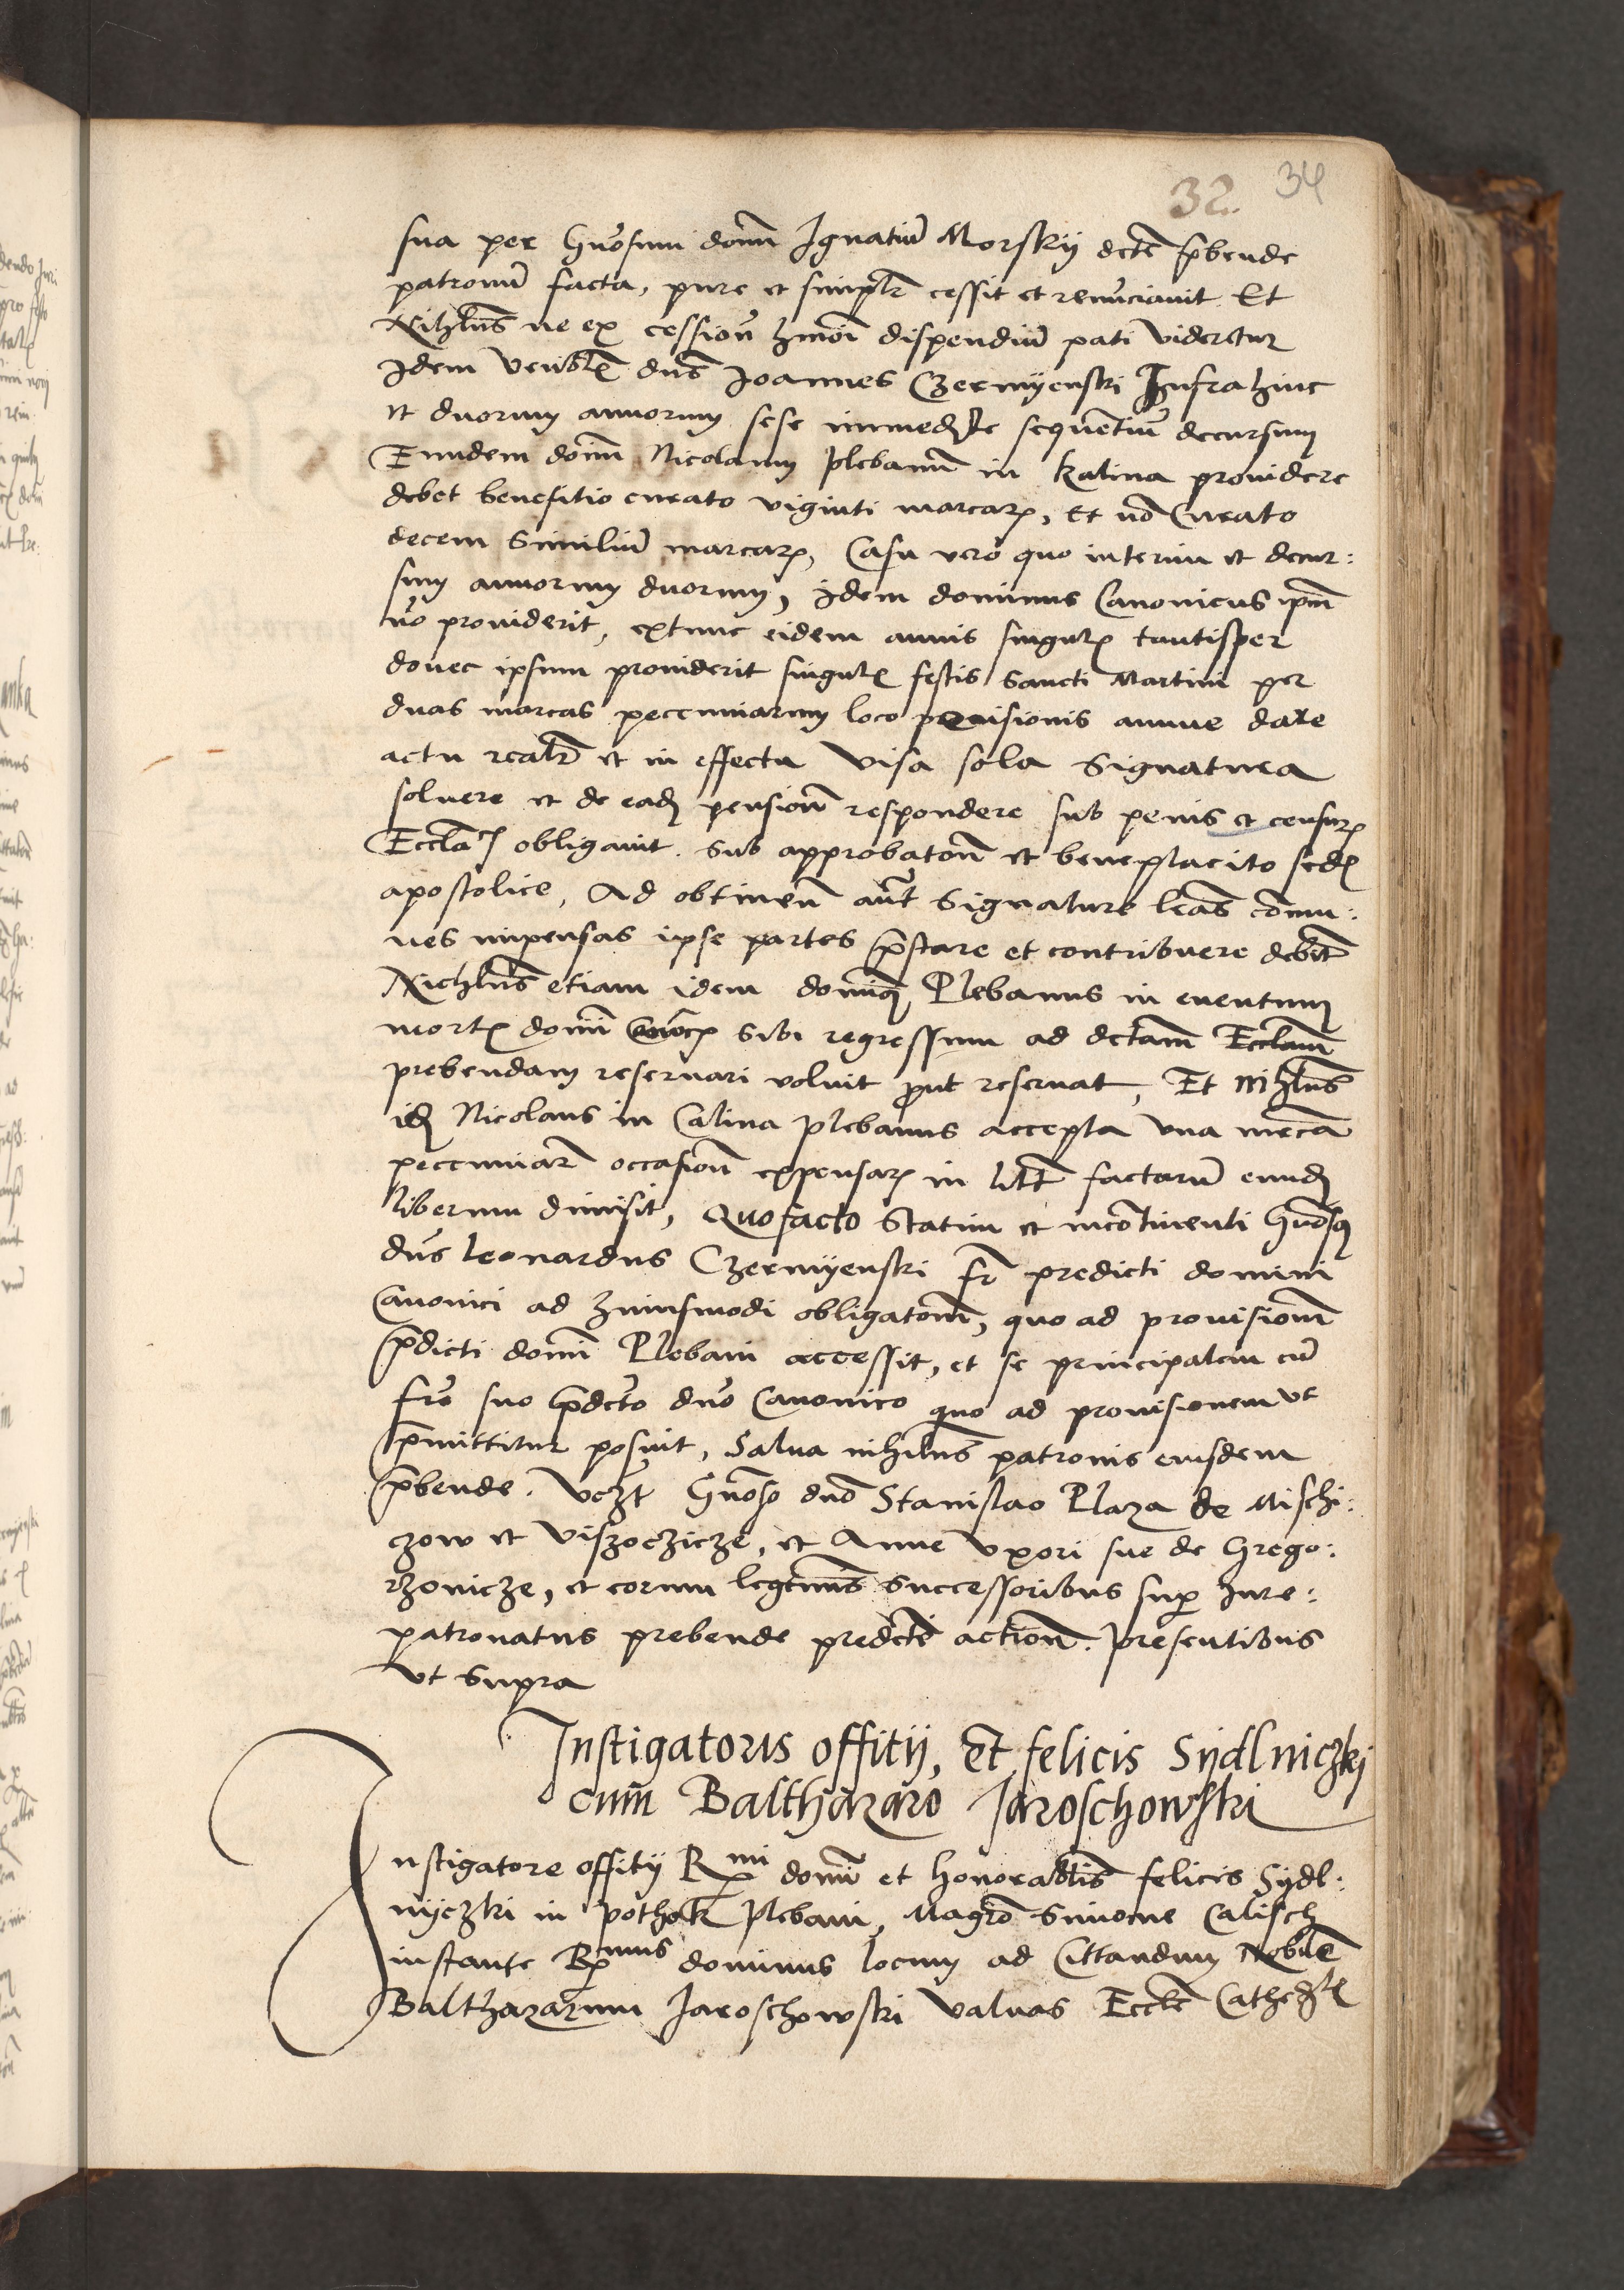 32. 34
sua per Gnosum domn Ignatiu Morskij dcte pbende
patronu facta, pure et simplr cessit et renuciauit. Et
Nihlns ne ex cession hmoi dispendiu pati videretur
Idem Venblis dns Joannes Czermyenski Infra hinc
et duorum annorum sese immedte sequentiu decursum
Eundem domn Nicolaum plebanu in Kalina prouidere
debet benefitio curato viginti marcar, Et no Curato
decem Similiu marcar, Casu vero quo interim et decur:
sum annorum duorum, Idem dominus Canonicus ipm
no prouiderit, extunc eidem annis singulis tantisper
donec ipsum prouiderit singulis festis Sancti Martini per
duas marcas pecuniarum loco prouisionis annue dare
actu realr et in effectu Visa sola Signatura
soluere et de ead pension respondere sub penis et censur
Eccla obligauit. Sub approbaton et beneplacito sedis
apostolice, Ad obtinen aut Signature lras commu:
nes impensas ipse partes pstare et contribuere debet
Nichlns etiam idem domnus Plebanus in euentum
mortis domn sibi regressum ad dctam Ecclam
prebendam reseruari voluit put reseruat, Et nihlns
id Nicolaus in Calina plebanus accepta vna mrca
pecuniar occasion expensar in lite factaru eund
liberum dimisit, Quo facto Statim et incontinenti Gnosus
dns Leonardus Czermyenski fr predicti domini
Canonici ad huiusmodi obligatom, quo ad prouisionem
pdicti domni Plebani accessit, et se principalem cu
fre suo pdcto dno Canonico quo ad prouisionem vt
pmittitur posuit, Salua nihilns patronis eiusdem
pbende. Vczt Gnoso dno Stanislao Plaza de Mischi:
czow et Viszoczicze, et Anne Vxori sue de Grego:
rzouicze, et eorum legtimis successoribus sup Iure:
patronatus prebende predcte action. presentibus
vt supra
Instigatoris offitij, et felicis Sijdlniczki
cum Balthazaro Jaroschowski
Instigatore offitij Rmi domni et honorablis felicis Sijdl:
nijczki in pothok plebani, Magro Simone Calisch
instante Rmus dominus locum ad Cittandum Nobile
Balthazarum Jaroschowski valuas Eccle Cathedlis